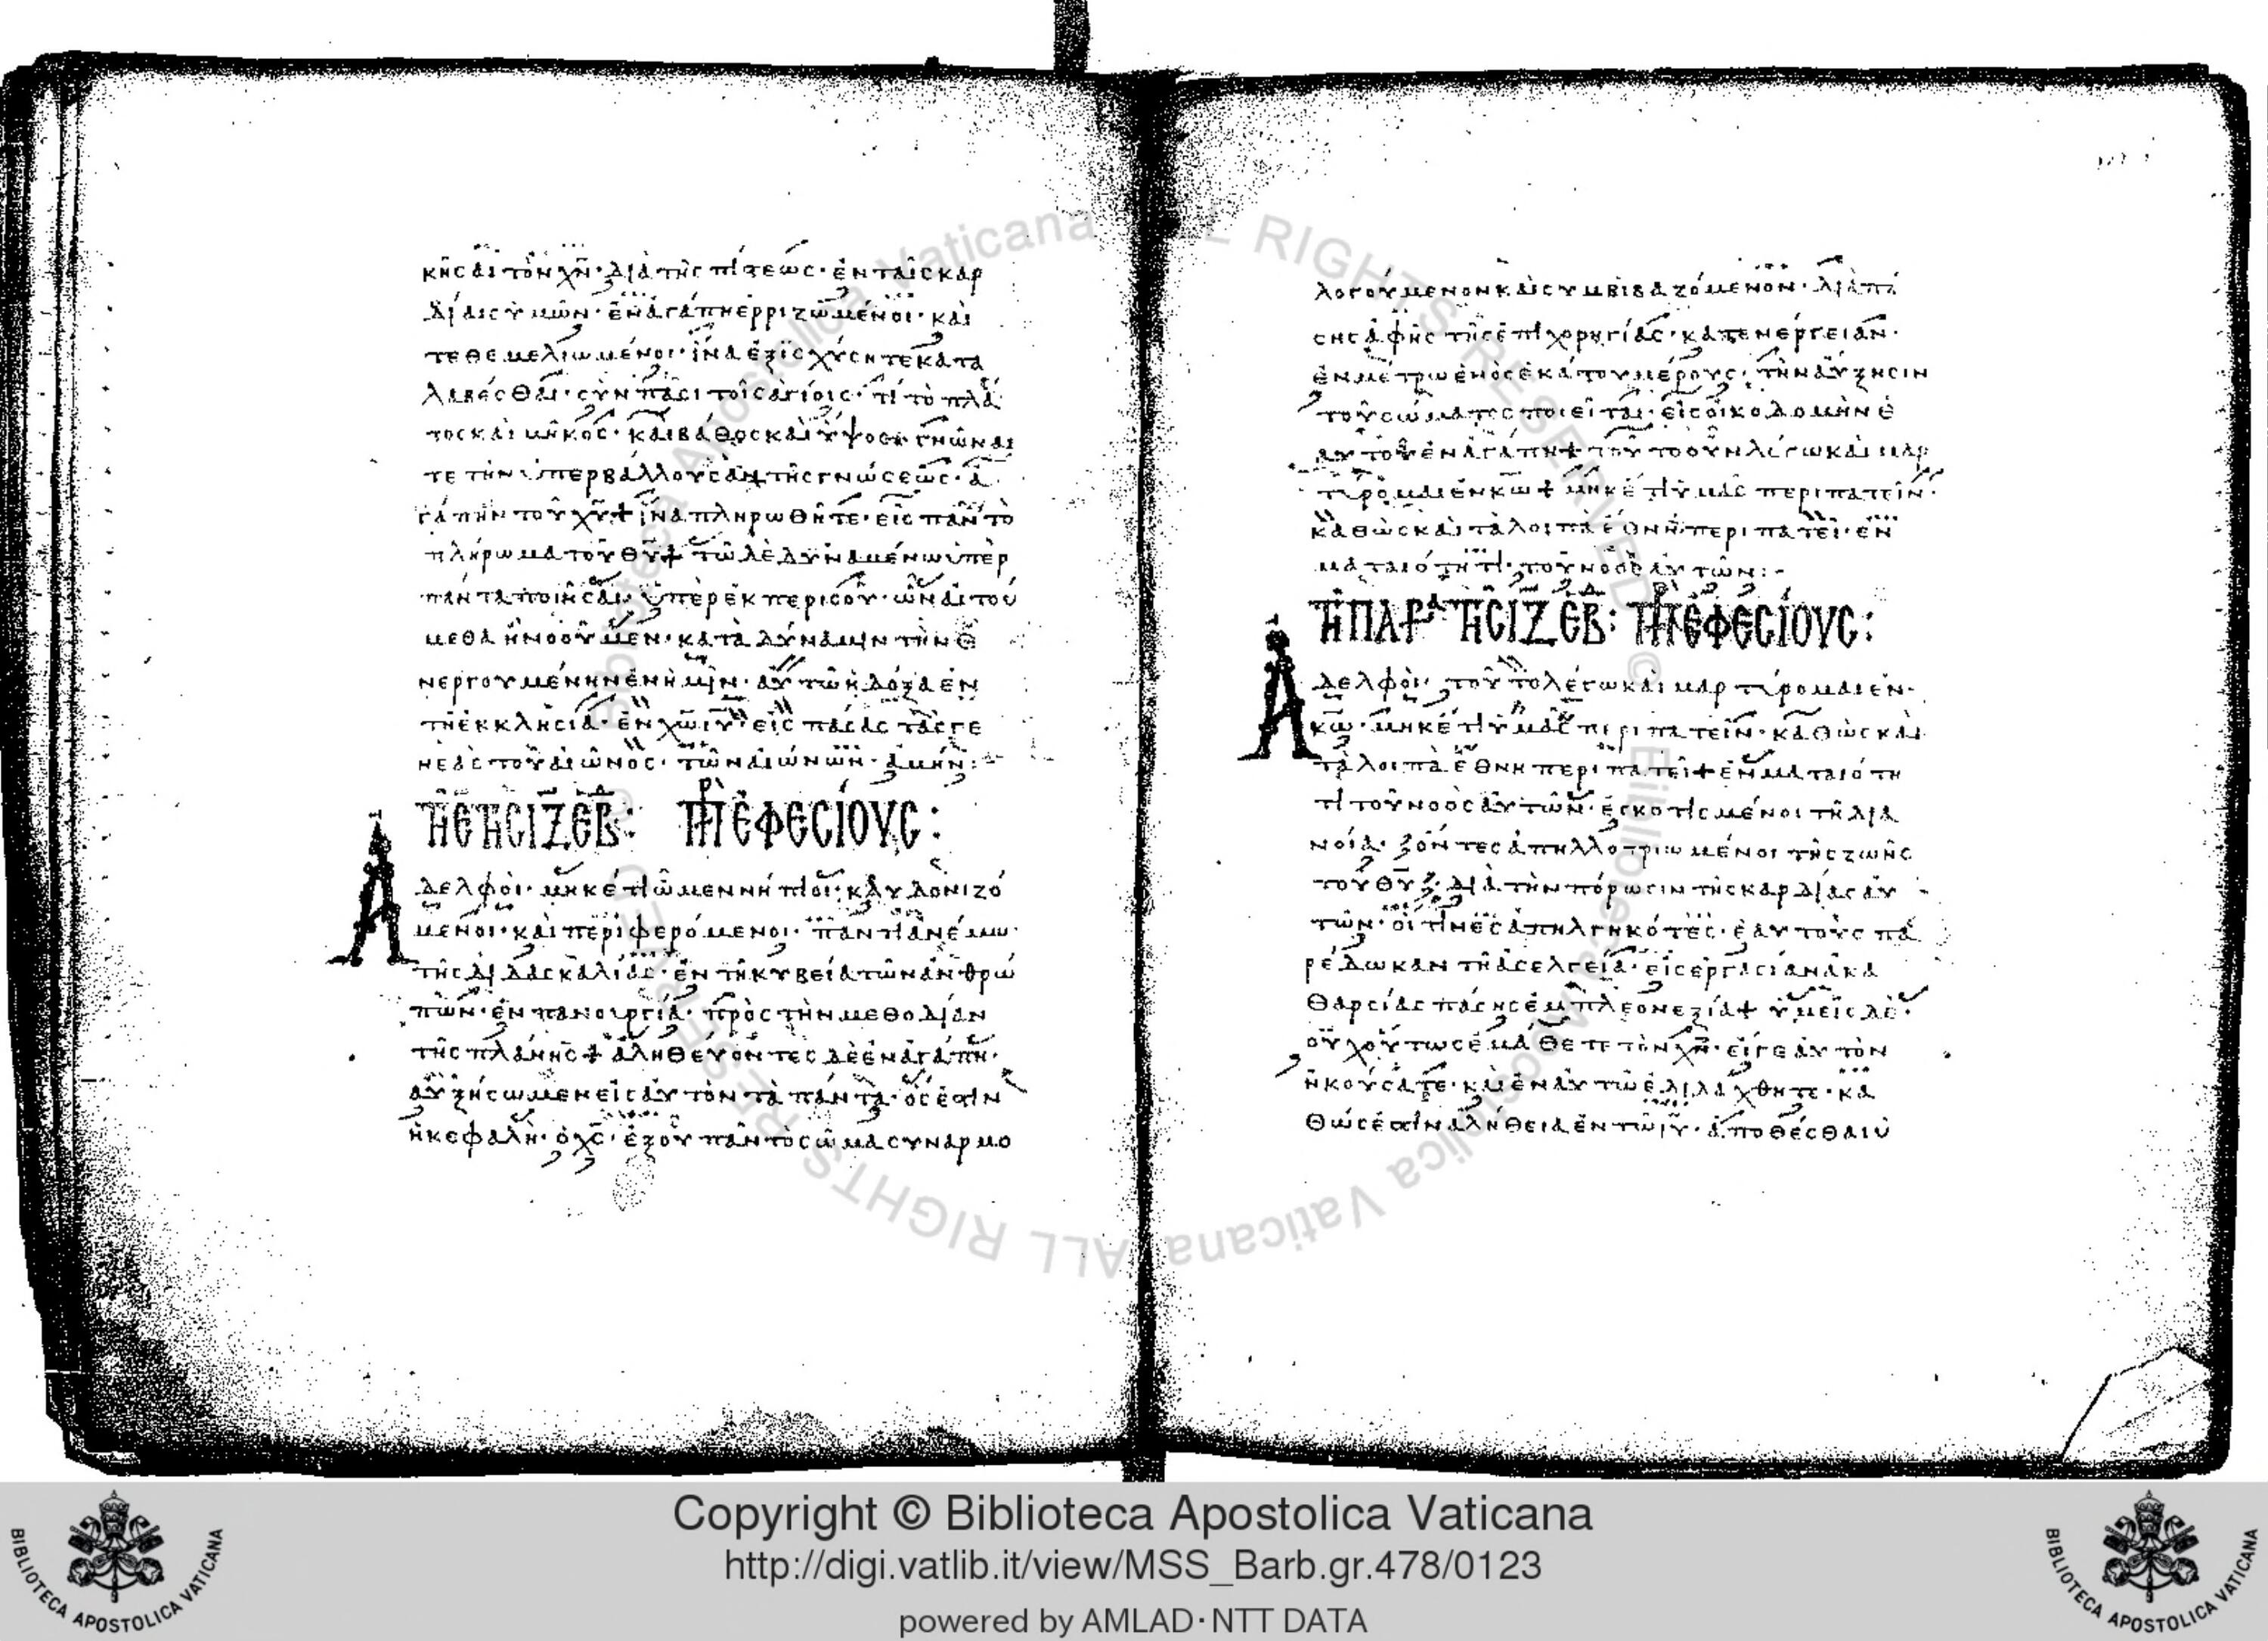 κῆσαι τὸν χν· διὰ τῆς πίστεως· ἐν ταῖς καρ
δίαις ὑμῶν· ἐν ἀγάπη ἐρριζωμένοι· καὶ
τεθεμελιωμένοι· ἵνα ἐξισχύσητε κατα
λαβέσθαι· σὺν πᾶσι τοῖς ἁγίοις· τί τὸ πλά
τος καὶ μῆκος· καὶ βάθος καὶ ὕψος· γνῶναι
τε τὴν ὑπερβάλλουσαν τῆς γνώσεως· ἀ
γάπην τοῦ χυ + ἵνα πληρωθῆτε· εἰς πᾶν τὸ
πλήρωμα τοῦ θυ + τῶ δὲ δυναμένω ὑπὲρ
πάντα ποιῆσαι· ὑπὲρ ἐκ περισοῦ· ὧν αἰτού
μεθα ἢ νοοῦμεν· κατὰ δύναμιν τὴν ἐ
νεργουμένην ἐν ἡμῖν· αὐτῶ ἡ δόξα ἐν
τῆ ἐκκλησία· ἐν χω ιυ· εἰς πάσας τὰς γε
νεὰς τοῦ αἰῶνος· τῶν αἰώνων· ἀμήν:
ΤΗ Ε ΤΗС ΙΖ ΕΒΔ: ΠΡ ΕΦΕСΙΟΥС:
Ἀδελφοὶ· μηκέτι ὦμεν νήπιοι· κλυδονιζό
μενοι· καὶ περιφερόμενοι· παντὶ ἀνέμω·
τῆς διδασκαλίας· ἐν τῆ κυβεία τῶν ἀνθρώ
πων· ἐν πανουργία· πρὸς τὴν μεθοδίαν
τῆς πλάνης + ἀληθεύοντες δὲ ἐν ἀγάπη·
αὐξήσωμεν εἰς αὐτὸν τὰ πάντα· ὅς ἐστιν
ἡ κεφαλὴ· ὁ χς· ἐξ οὗ πᾶν τὸ σῶμα συναρμο
λογούμενον καὶ συμβιβαζόμενον· διὰ πά
σης ἁφῆς τῆς ἐπιχορηγίας· κατ ενέργειαν·
ἐν μέτρω ἑνὸς ἑκάτου μέρους· τὴν αὔξησιν
τοῦ σώματος ποιεῖται· εἰς οἰκοδομὴν ἑ
αυτοῦ ἐν ἀγάπη + τοῦτο οὖν λέγω καὶ μαρ
τύρομαι ἐν κω + μηκέτι ὑμᾶς περιπατεῖν·
καθὼς καὶ τὰ λοιπὰ ἔθνη περιπατεῖ· ἐν
ματαιότητι· τοῦ νοὸς αὐτῶν:-
ΤΗ ΠΑΡ ΤΗС ΙΖ ΕΒΔ: ΠΡ ΕΦΕСΙΟΥС:
Ἀδελφοὶ· τοῦτο λέγω καὶ μαρτύρομαι ἐν
κω· μηκέτι ὑμᾶς περιπατεῖν· καθὼς καὶ
τὰ λοιπὰ ἔθνη περιπατεῖ + ἐν ματαιότη
τι τοῦ νοὸς αὐτῶν· ἐσκοτισμένοι τῆ δια
νοία· ὄντες ἀπηλλοτριωμένοι τῆς ζωῆς
τοῦ θυ· διὰ τὴν πόρωσιν τῆς καρδίας αὐ
τῶν· οἵτινες ἀπηλγηκότες· ἑαυτοὺς πα
ρέδωκαν τῆ ἀσελγεία· εἰς ἐργασίαν ἀκα
θαρσίας πάσης ἐμ πλεονεξία + ὑμεῖς δὲ·
οὐχ οὕτως ἐμάθετε τὸν χν· εἴγε αὐτὸν
ἠκούσατε· καὶ ἐν αὐτῶ ἐδιδάχθητε· κα
θώς ἐστιν ἀλήθεια ἐν τῶ ιυ· ἀποθέσθαι ὑ
Copyright © Biblioteca Apostolica Vaticana
http://digi.vatlib.it/view/MSS_Barb.gr.478/0123
powered by AMLAD·NTT DATA
BIBLIOTECA APOSTOLICA VATICANA
BIBLIOTECA APOSTOLICA VATICANA